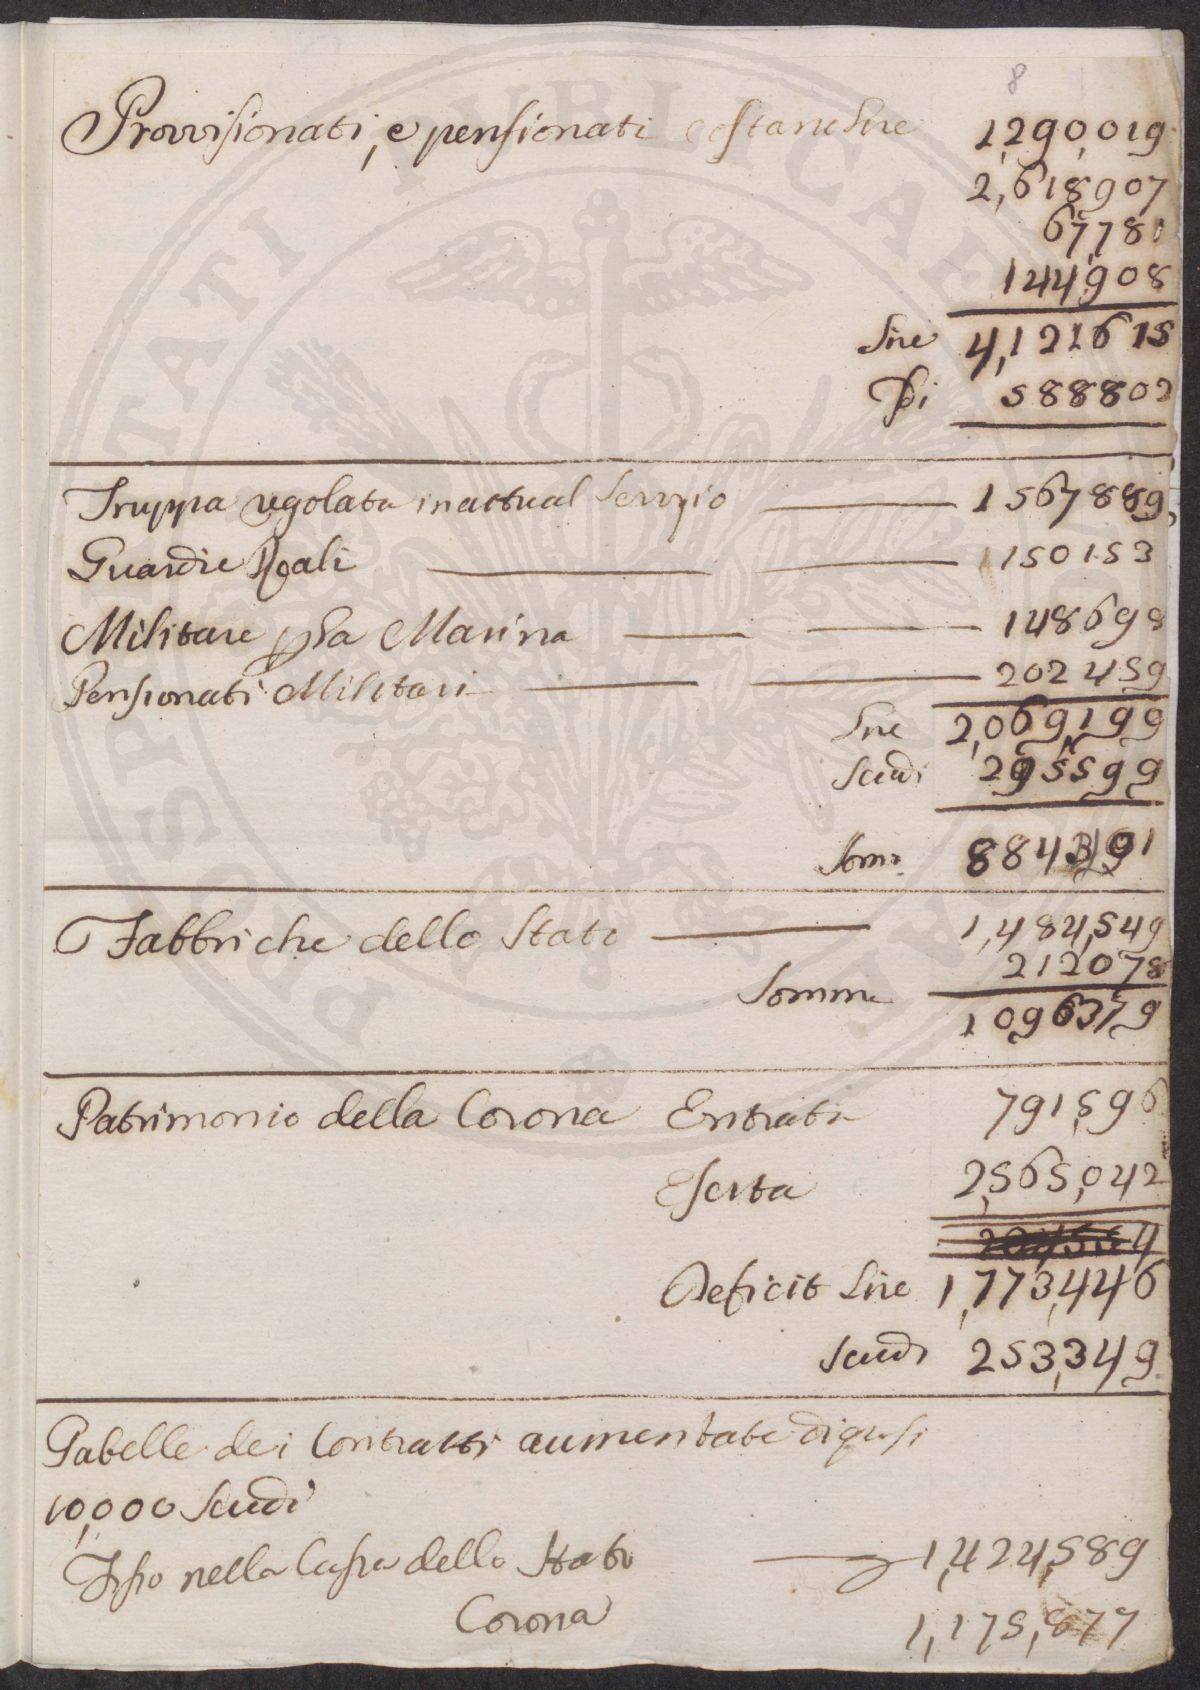 8
Provvisionati, e pensionati costano lire 1,290,019
2,618907
67,780
144,908
lire 4,121615
Di 588802
Truppa regolata in attual servizio 1567889
Guardie Reali 150153
Militare p la Marina 148698
Pensionati Militari 202459
lire 2,069,199
scudi 295599
Som. 884391
Fabbriche dello Stato 1,484,549
212078
Somma 1096379
Patrimonio della Corona Entrata 791,596
Escita 2,565,042
Deficit lire 1,773,446
scudi 253,349
Gabelle dei Contratti aumentate di quasi
10,000 scudi
nella Cassa dello Stato 1,424,589
Corona 1,175,877
PROSPERITATI PUBLICAE